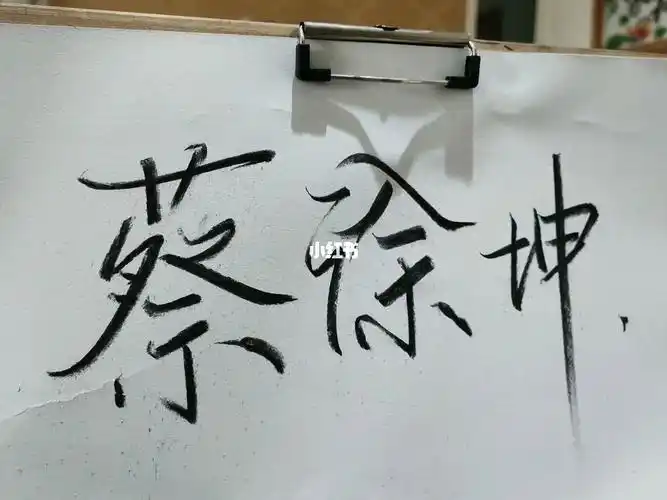 蔡徐坤.
小红书